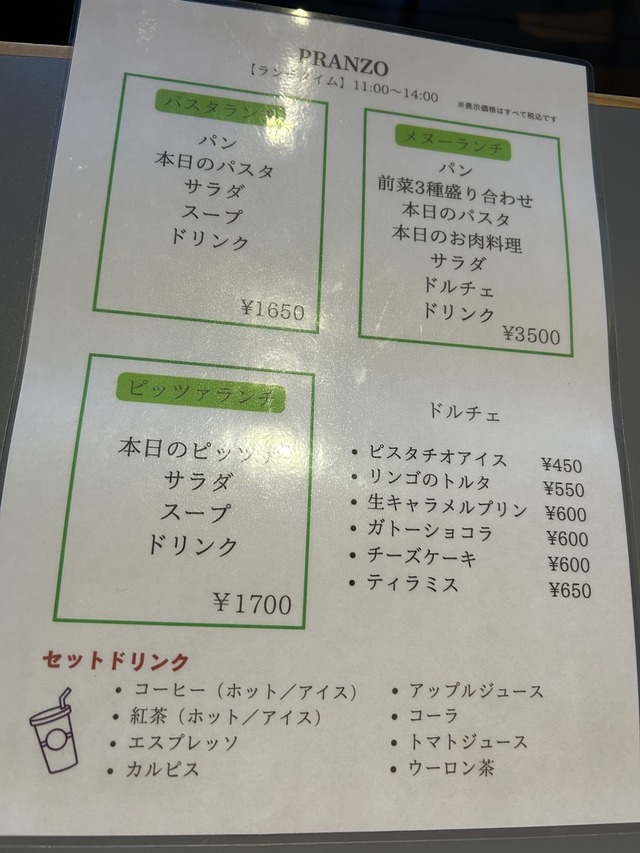 PRANZO
【ランチタイム】11:00～14:00
※表示価格はすべて税込です
パスタランチ
パン
本日のパスタ
サラダ
スープ
ドリンク
¥1650
メヌーランチ
パン
前菜3種盛り合わせ
本日のパスタ
本日のお肉料理
サラダ
ドルチェ
ドリンク
¥3500
ピッツァランチ
本日のピッツァ
サラダ
スープ
ドリンク
¥1700
ドルチェ
• ピスタチオアイス ¥450
• リンゴのトルタ ¥550
• 生キャラメルプリン ¥600
• ガトーショコラ ¥600
• チーズケーキ ¥600
• ティラミス ¥650
セットドリンク
• コーヒー（ホット／アイス）
• 紅茶（ホット／アイス）
• エスプレッソ
• カルピス
• アップルジュース
• コーラ
• トマトジュース
• ウーロン茶